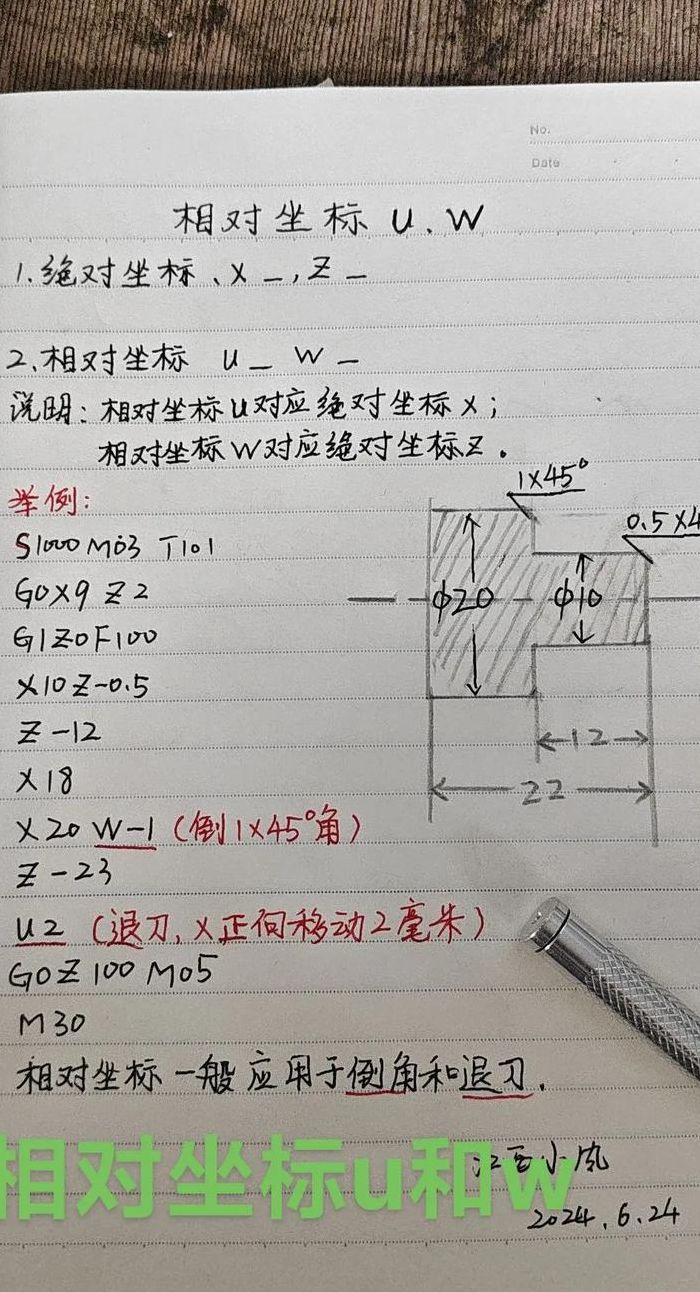 No.
Date
相对坐标 U、W
1.绝对坐标、X _ , Z _
2.相对坐标 U _ W _
说明：相对坐标U对应绝对坐标X；
相对坐标W对应绝对坐标Z。
举例：
S1000 M03 T101
G0X9 Z2
G1Z0F100
X10Z-0.5
Z-12
X18
X20 W-1（倒1X45°角）
Z-23
U2（退刀，X正向移动2毫米）
G0Z100 M05
M30
1X45°
0.5X4
φ20
φ10
12
22
相对坐标一般应用于倒角和退刀.
江西小凤
2024.6.24
相对坐标u和w